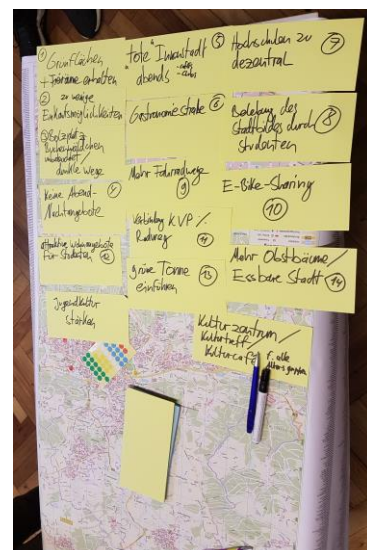 ① Grünflächen
+ Freiräume erhalten
② zu wenige
Einkaufsmöglichkeiten
③ Bolzplatz
dunkle Wege
Keine Abend-
Nachtangebote
attraktive Wohnangebote
für Studenten 12
Jugendkultur
stärken
"tote" Innenstadt ⑤
abends
Gastronomiestraße ⑥
Mehr Fahrradwege
9
Verbindung KVP /
Radweg 11
grüne Tonne
einführen 13
Hochschulen zu ⑦
dezentral
Belebung des ⑧
Stadtbildes durch
Studenten
E-Bike-Sharing
10
Mehr Obstbäume /
Essbare Stadt 14
Kulturzentrum /
Kulturtreff /
Kulturcafé f. alle